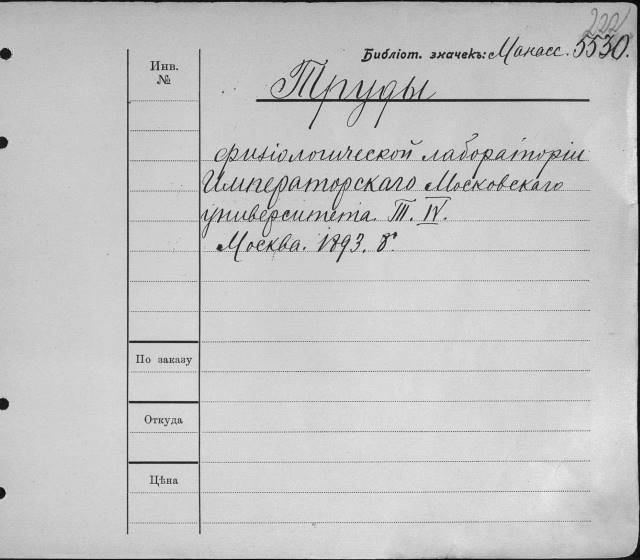 222
Библіот. значекъ: Манасс. 5530.
Инв.
№
Труды
физіологической лабораторіи
Императорскаго Московскаго
университета. Т. IV.
Москва. 1893. 8°
По заказу
Откуда
Цѣна